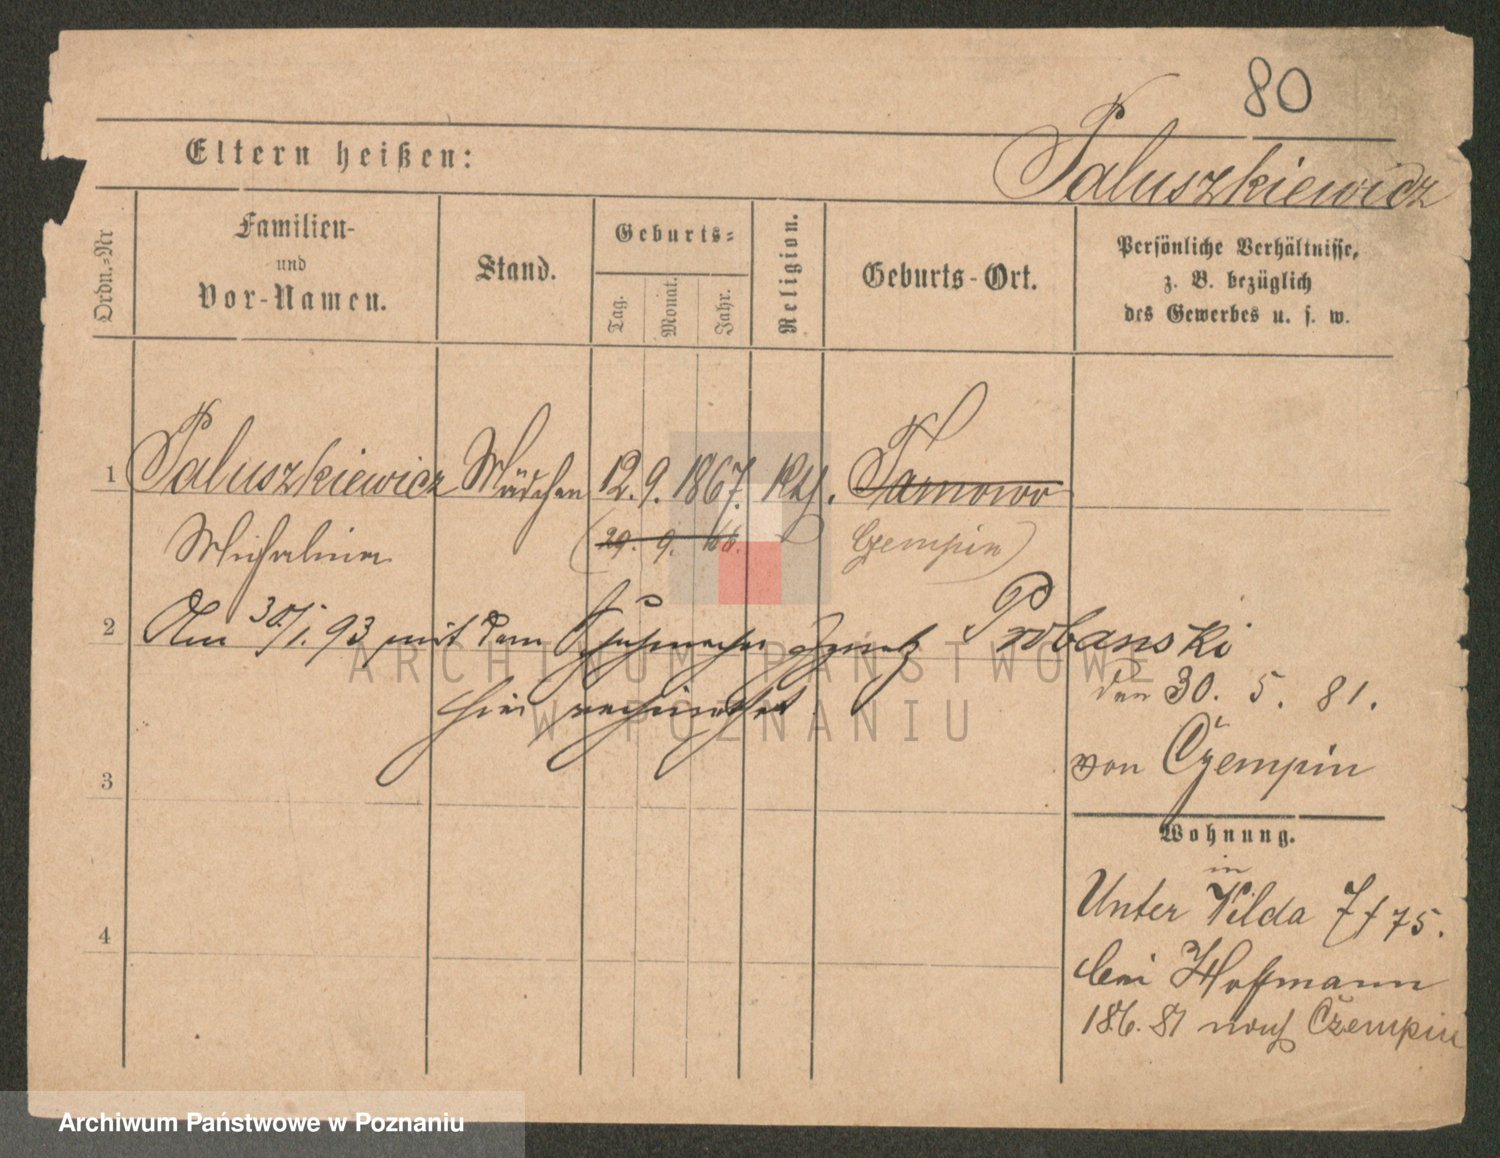 80
Eltern heißen:
Paluszkiewicz
Ordn.-Nr
Familien-
und
Vor-Namen.
Stand.
Geburts-
Tag.
Monat.
Jahr.
Religion.
Geburts-Ort.
Persönliche Verhältnisse,
z. B. bezüglich
des Gewerbes u. s. w.
1 Paluszkiewicz Mädchen 12. 9. 1867. kth. Tarnowo
Michalina (29. 9. 66. Czempin)
2 Am 30/1. 93 mit dem Schuhmacher Ignatz Urbanski
hier verheirathet
den 30. 5. 81.
von Czempin
3
Wohnung.
in
Unter Vilda 7/75.
bei Hoffmann
18.6.81 nach Czempin
4
ARCHIWUM PAŃSTWOWE
W POZNANIU
Archiwum Państwowe w Poznaniu